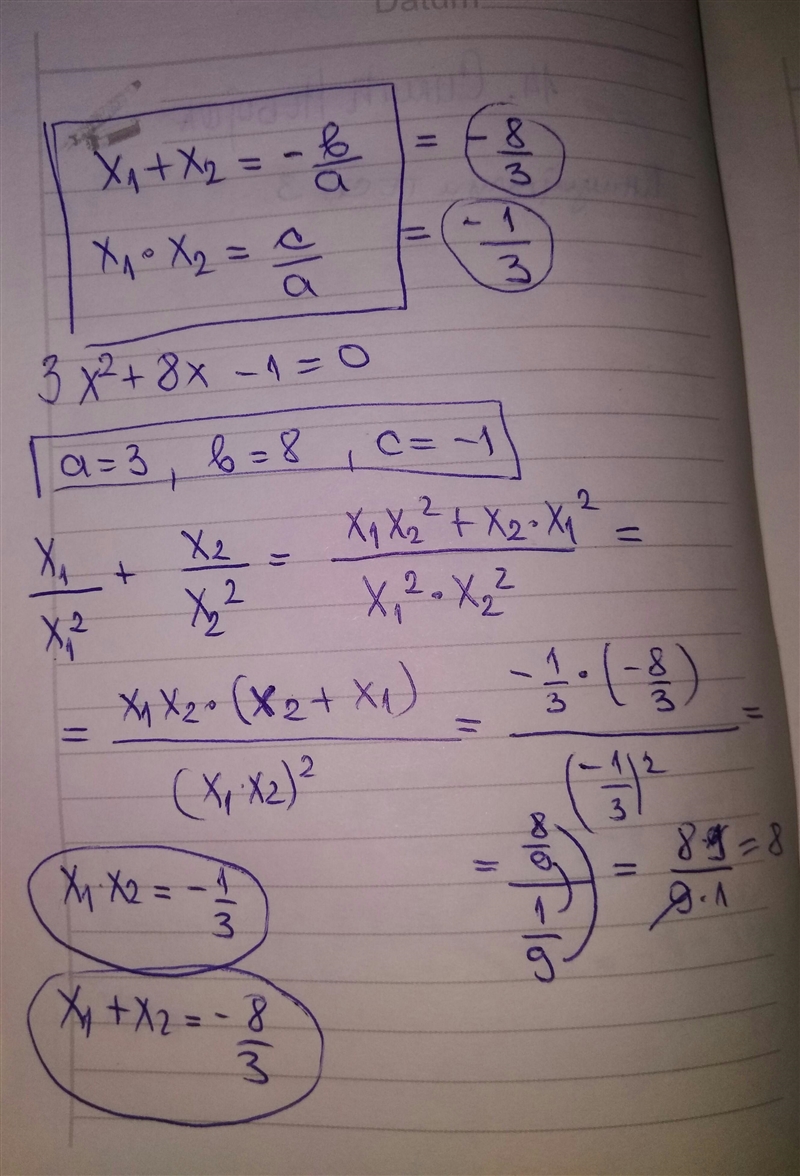 Datum
x₁ + x₂ = - в/a = - 8/3
x₁ · x₂ = c/a = - 1/3
3x² + 8x - 1 = 0
a = 3, в = 8, c = -1
x₁/x₁² + x₂/x₂² = (x₁x₂² + x₂·x₁²)/(x₁²·x₂²) =
= (x₁x₂·(x₂ + x₁))/(x₁·x₂)² = (-1/3·(-8/3))/(-1/3)² =
= (8/9)/(1/9) = (8·9)/(9·1) = 8
x₁·x₂ = - 1/3
x₁ + x₂ = - 8/3